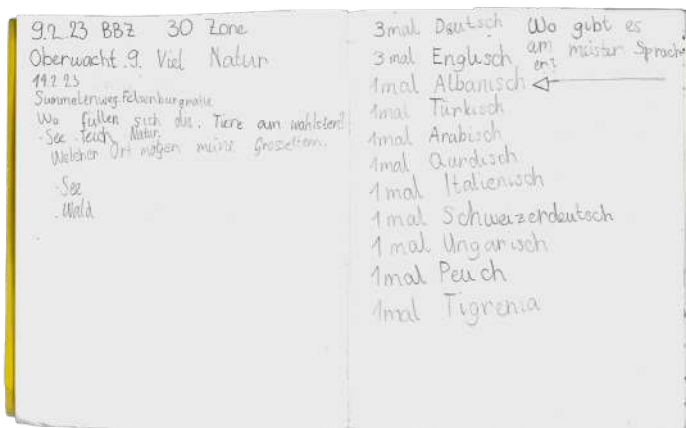 9.2.23 BBZ 30 Zone
Oberwacht.9. Viel Natur
14.2.23
Wo füllen sich die. Tiere am wohlsten?
-See. teich, Natur.
Welcher Ort mögen meine Grosseltern.
-See
.Wald
3mal Deutsch
3mal Englisch
1mal Albanisch
1mal Türkisch
1mal Arabisch
1mal Qurdisch
1mal Italienisch
1mal Schweizerdeutsch
1mal Ungarisch
1mal Peuch
1mal Tigrenia
Wo gibt es
am meisten Sprach
en?